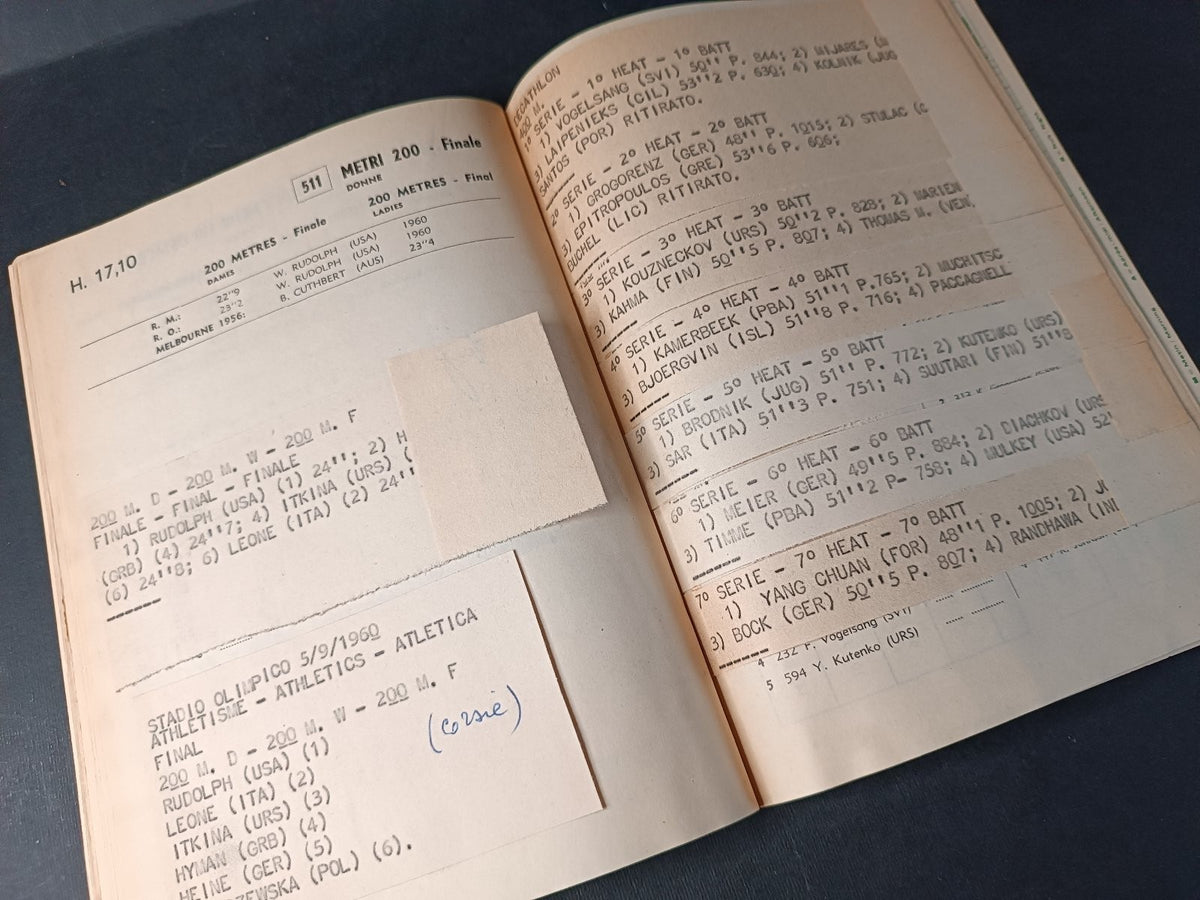 H. 17,10
511 METRI 200 - Finale
DONNE
200 METRES - Finale
DAMES
200 METRES - Final
LADIES
R. M.: 22"9 W. RUDOLPH (USA) 1960
R. O.: 23"2 W. RUDOLPH (USA) 1960
MELBOURNE 1956: B. CUTHBERT (AUS) 23"4
200 M. D - 200 M. W - 200 M. F
FINALE - FINAL - FINALE
1) RUDOLPH (USA) (1) 24''; 2) H
(GRB) (4) 24''7; 4) ITKINA (URS) (
(6) 24''8; 6) LEONE (ITA) (2) 24''
STADIO OLIMPICO 5/9/1960
ATHLETISME - ATHLETICS - ATLETICA
FINAL
200 M. D - 200 M. W - 200 M. F
RUDOLPH (USA) (1)
(corsie)
LEONE (ITA) (2)
ITKINA (URS) (3)
HYMAN (GRB) (4)
HEINE (GER) (5)
ZEWSKA (POL) (6).
DECATHLON
400 M.
1º SERIE - 1º HEAT - 1º BATT
1) VOGELSANG (SVI) 50'' P. 844; 2) MIJARES (
3) LAIPENIEKS (CIL) 53''2 P. 630; 4) KOLNIK (JUG
SANTOS (POR) RITIRATO.
2º SERIE - 2º HEAT - 2º BATT
1) GROGORENZ (GER) 48'' P. 1015; 2) STULAC (
3) EPITROPOULOS (GRE) 53''6 P. 606;
BUCHEL (LIC) RITIRATO.
3º SERIE - 3º HEAT - 3º BATT
1) KOUZNECKOV (URS) 50''2 P. 828; 2) MARIEN
3) KAHMA (FIN) 50''5 P. 807; 4) THOMAS M. (VEN
4º SERIE - 4º HEAT - 4º BATT
1) KAMERBEEK (PBA) 51''1 P.765; 2) MUCHITSC
3) BJOERGVIN (ISL) 51''8 P. 716; 4) PACCAGNELL
5º SERIE - 5º HEAT - 5º BATT
1) BRODNIK (JUG) 51'' P. 772; 2) KUTENKO (URS)
3) SAR (ITA) 51''3 P. 751; 4) SUUTARI (FIN) 51''8
6º SERIE - 6º HEAT - 6º BATT
1) MEIER (GER) 49''5 P. 884; 2) DIACHKOV (URS
3) TIMME (PBA) 51''2 P- 758; 4) MULKEY (USA) 52'
7º SERIE - 7º HEAT - 7º BATT
1) YANG CHUAN (FOR) 48''1 P. 1005; 2) J
3) BOCK (GER) 50''5 P. 807; 4) RANDHAWA (IN
4 232 F. Vogelsang (SVI)
5 594 Y. Kutenko (URS)